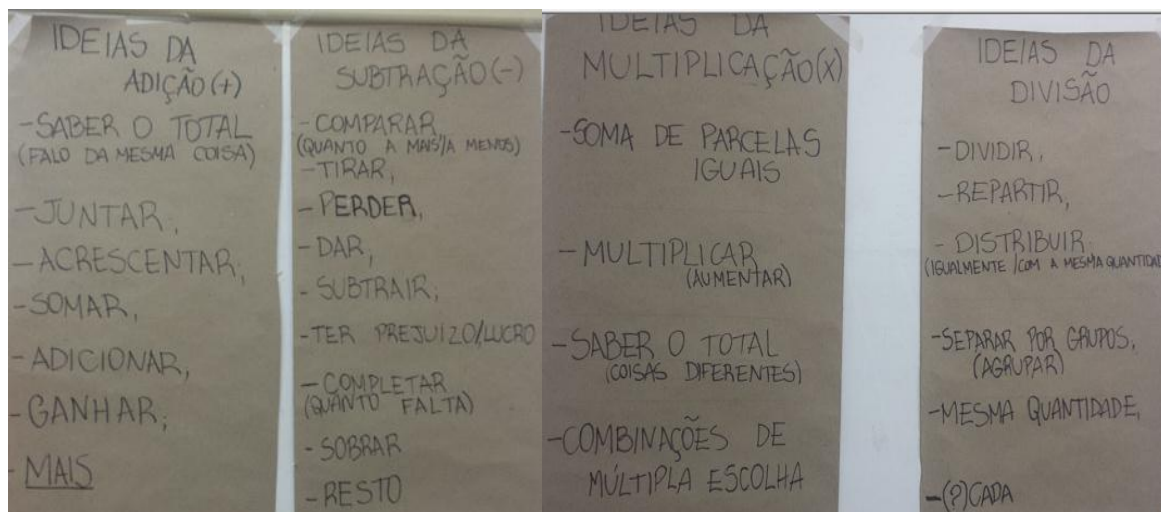 IDEIAS DA
ADIÇÃO (+)
-SABER O TOTAL
(FALO DA MESMA COISA)
-JUNTAR;
-ACRESCENTAR;
-SOMAR,
-ADICIONAR,
-GANHAR;
-MAIS
IDEIAS DA
SUBTRAÇÃO (-)
-COMPARAR
(QUANTO A MAIS/A MENOS)
-TIRAR,
-PERDER,
-DAR,
-SUBTRAIR;
-TER PREJUIZO/LUCRO
-COMPLETAR
(QUANTO FALTA)
-SOBRAR
-RESTO
IDEIAS DA
MULTIPLICAÇÃO (X)
-SOMA DE PARCELAS
IGUAIS
-MULTIPLICAR
(AUMENTAR)
-SABER O TOTAL
(COISAS DIFERENTES)
-COMBINAÇÕES DE
MÚLTIPLA ESCOLHA
IDEIAS DA
DIVISÃO
-DIVIDIR,
-REPARTIR,
-DISTRIBUIR
(IGUALMENTE/COM A MESMA QUANTIDAD
-SEPARAR POR GRUPOS,
(AGRUPAR)
-MESMA QUANTIDADE,
-(?)CADA